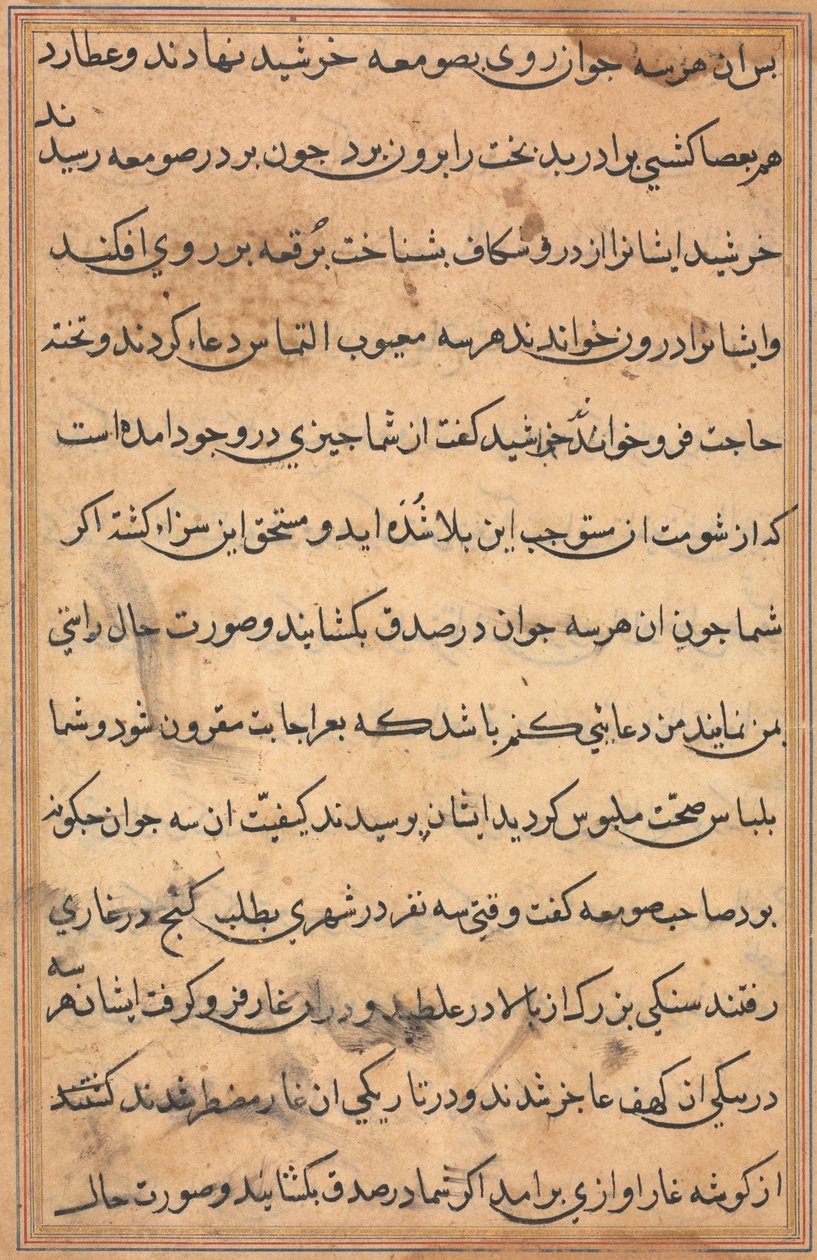 بس ان هر سه جوان روی بصومعه خرشید نهادند و عطارد
هم بعصا کشیی برادر بد بخت را برون برد جون بر در صومعه رسیدند
خرشید ایشانرا از در و شکاف بشناخت بُرقعه بر روی افکند
وایشانرا درون خواندند هر سه معیوب التماس دعاء کردند و تخته
حاجت فرو خواندند خرشید کفت از شما جیزی در وجود امده است
که از شومت ان مستوجب این بلا شُدَه اید و مستحق این سزاء کشته اکر
شما جون ان هر سه جوان در صدق بکشایند و صورت حال راستی
بمن نمایند من دعایی کنم باشد که بعز اجابت مقرون شود و شما
بلباس صحّت ملبوس کردید ایشان پرسیدند کیفیّت ان سه جوان جکونه
بود صاحب صومعه کفت وقتی سه نفر در شهری بطلب کنج در غاری
رفتند سنکی بزرک از بالا در غلطید و در ان غار فرو کرفت ایشان هر سه
در تنکی ان کهف عاجز شدند و در تاریکی ان غار مضطر شدند کفتند
از کوشه غار اوازی برامد اکر شما در صدق بکشایند و صورت حال